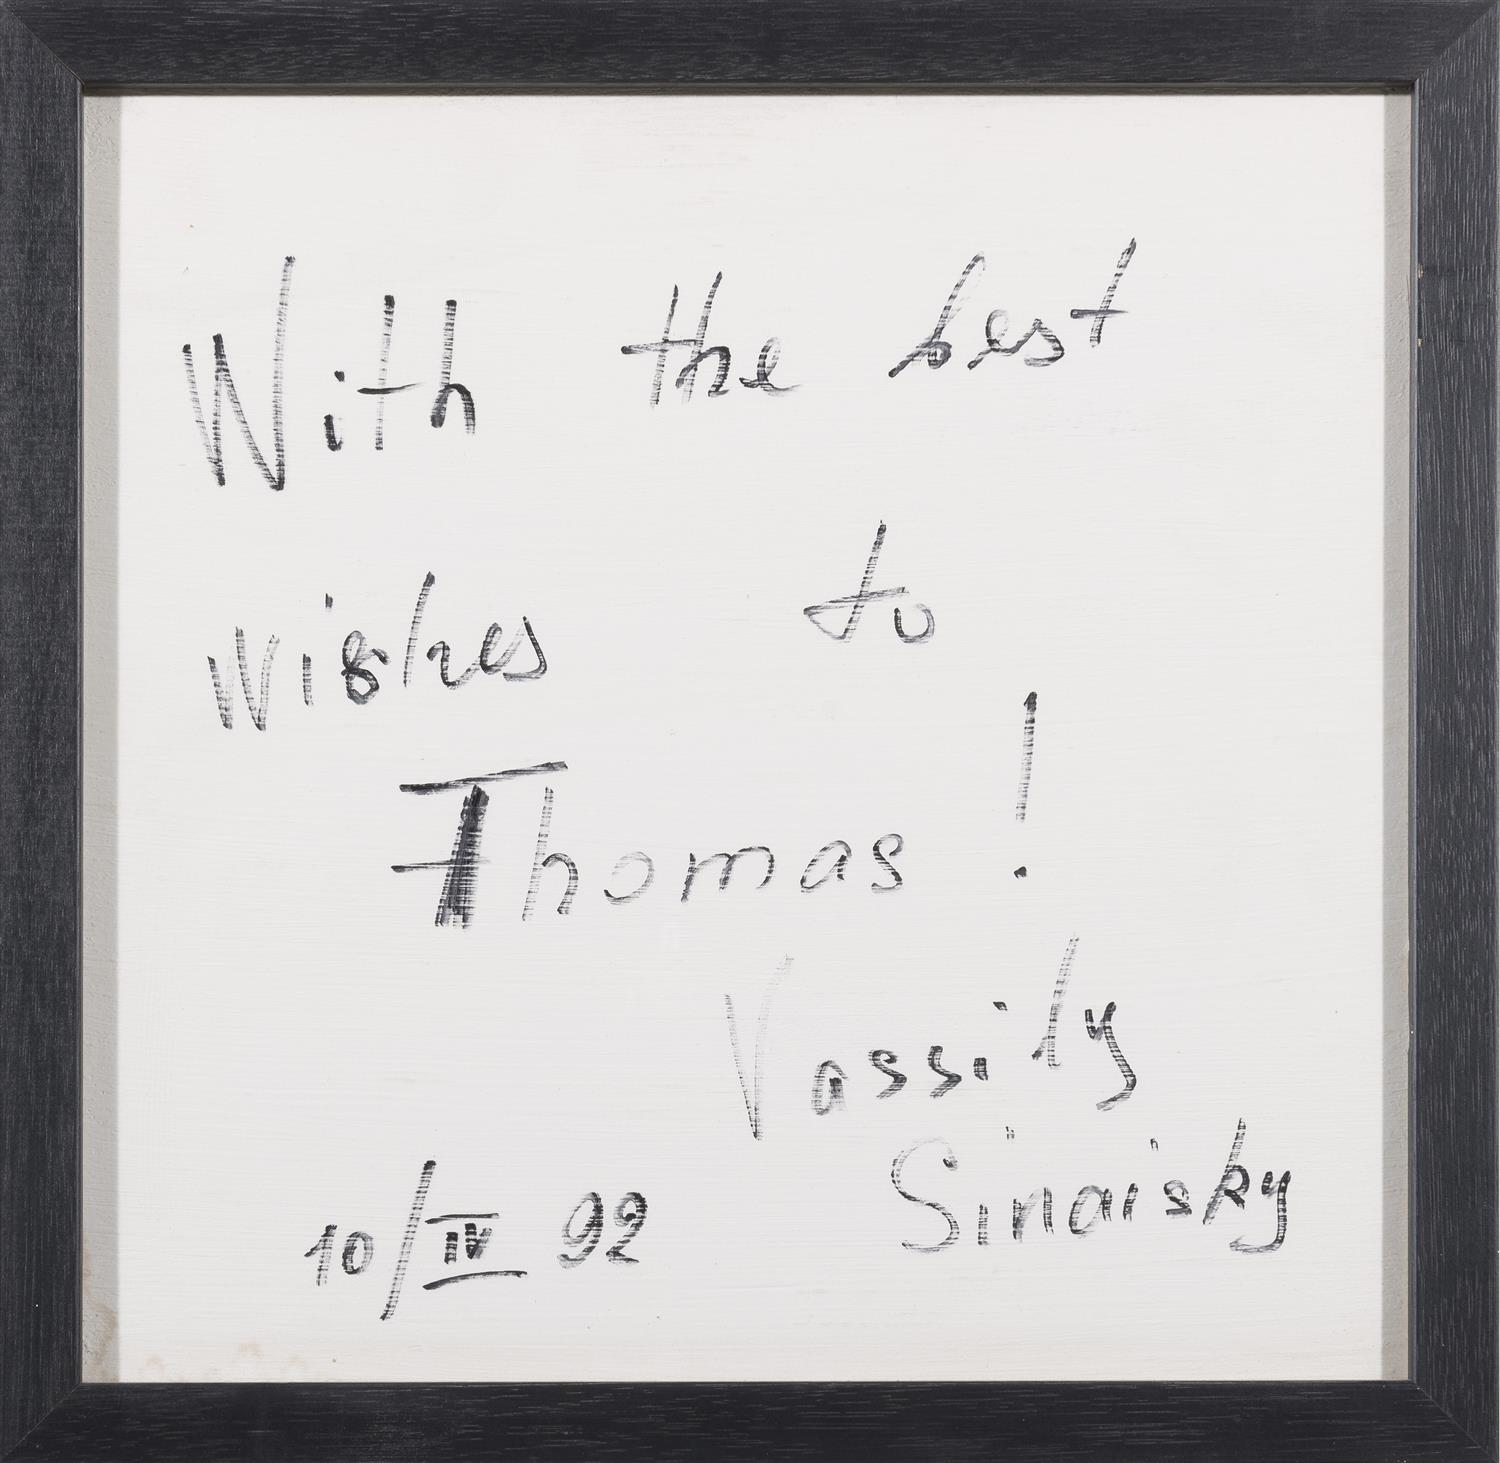 With the best
wishes to
Thomas!
Vassily
Sinaisky
10/IV 92